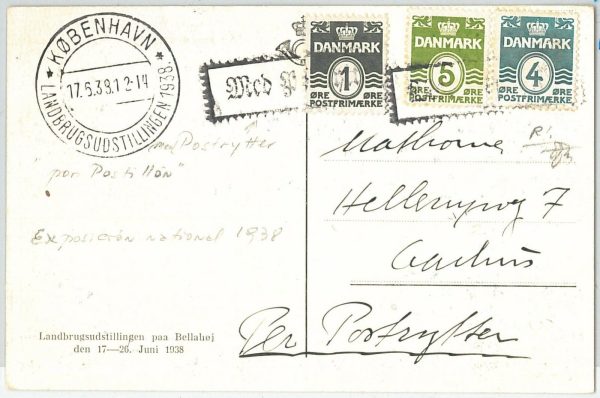 KØBENHAVN
17.6.38.12-14
LANDBRUGSUDSTILLINGEN 1938.
Med
DANMARK
1
ØRE ØRE
POSTFRIMÆRKE
DANMARK
5
ØRE ØRE
POSTFRIMÆRKE
DANMARK
4
ØRE ØRE
POSTFRIMÆRKE
Postrytter
"por Postillón"
Exposición national 1938
7
Aarhus
Per Postrytter
Landbrugsudstillingen paa Bellahøj
den 17—26. Juni 1938